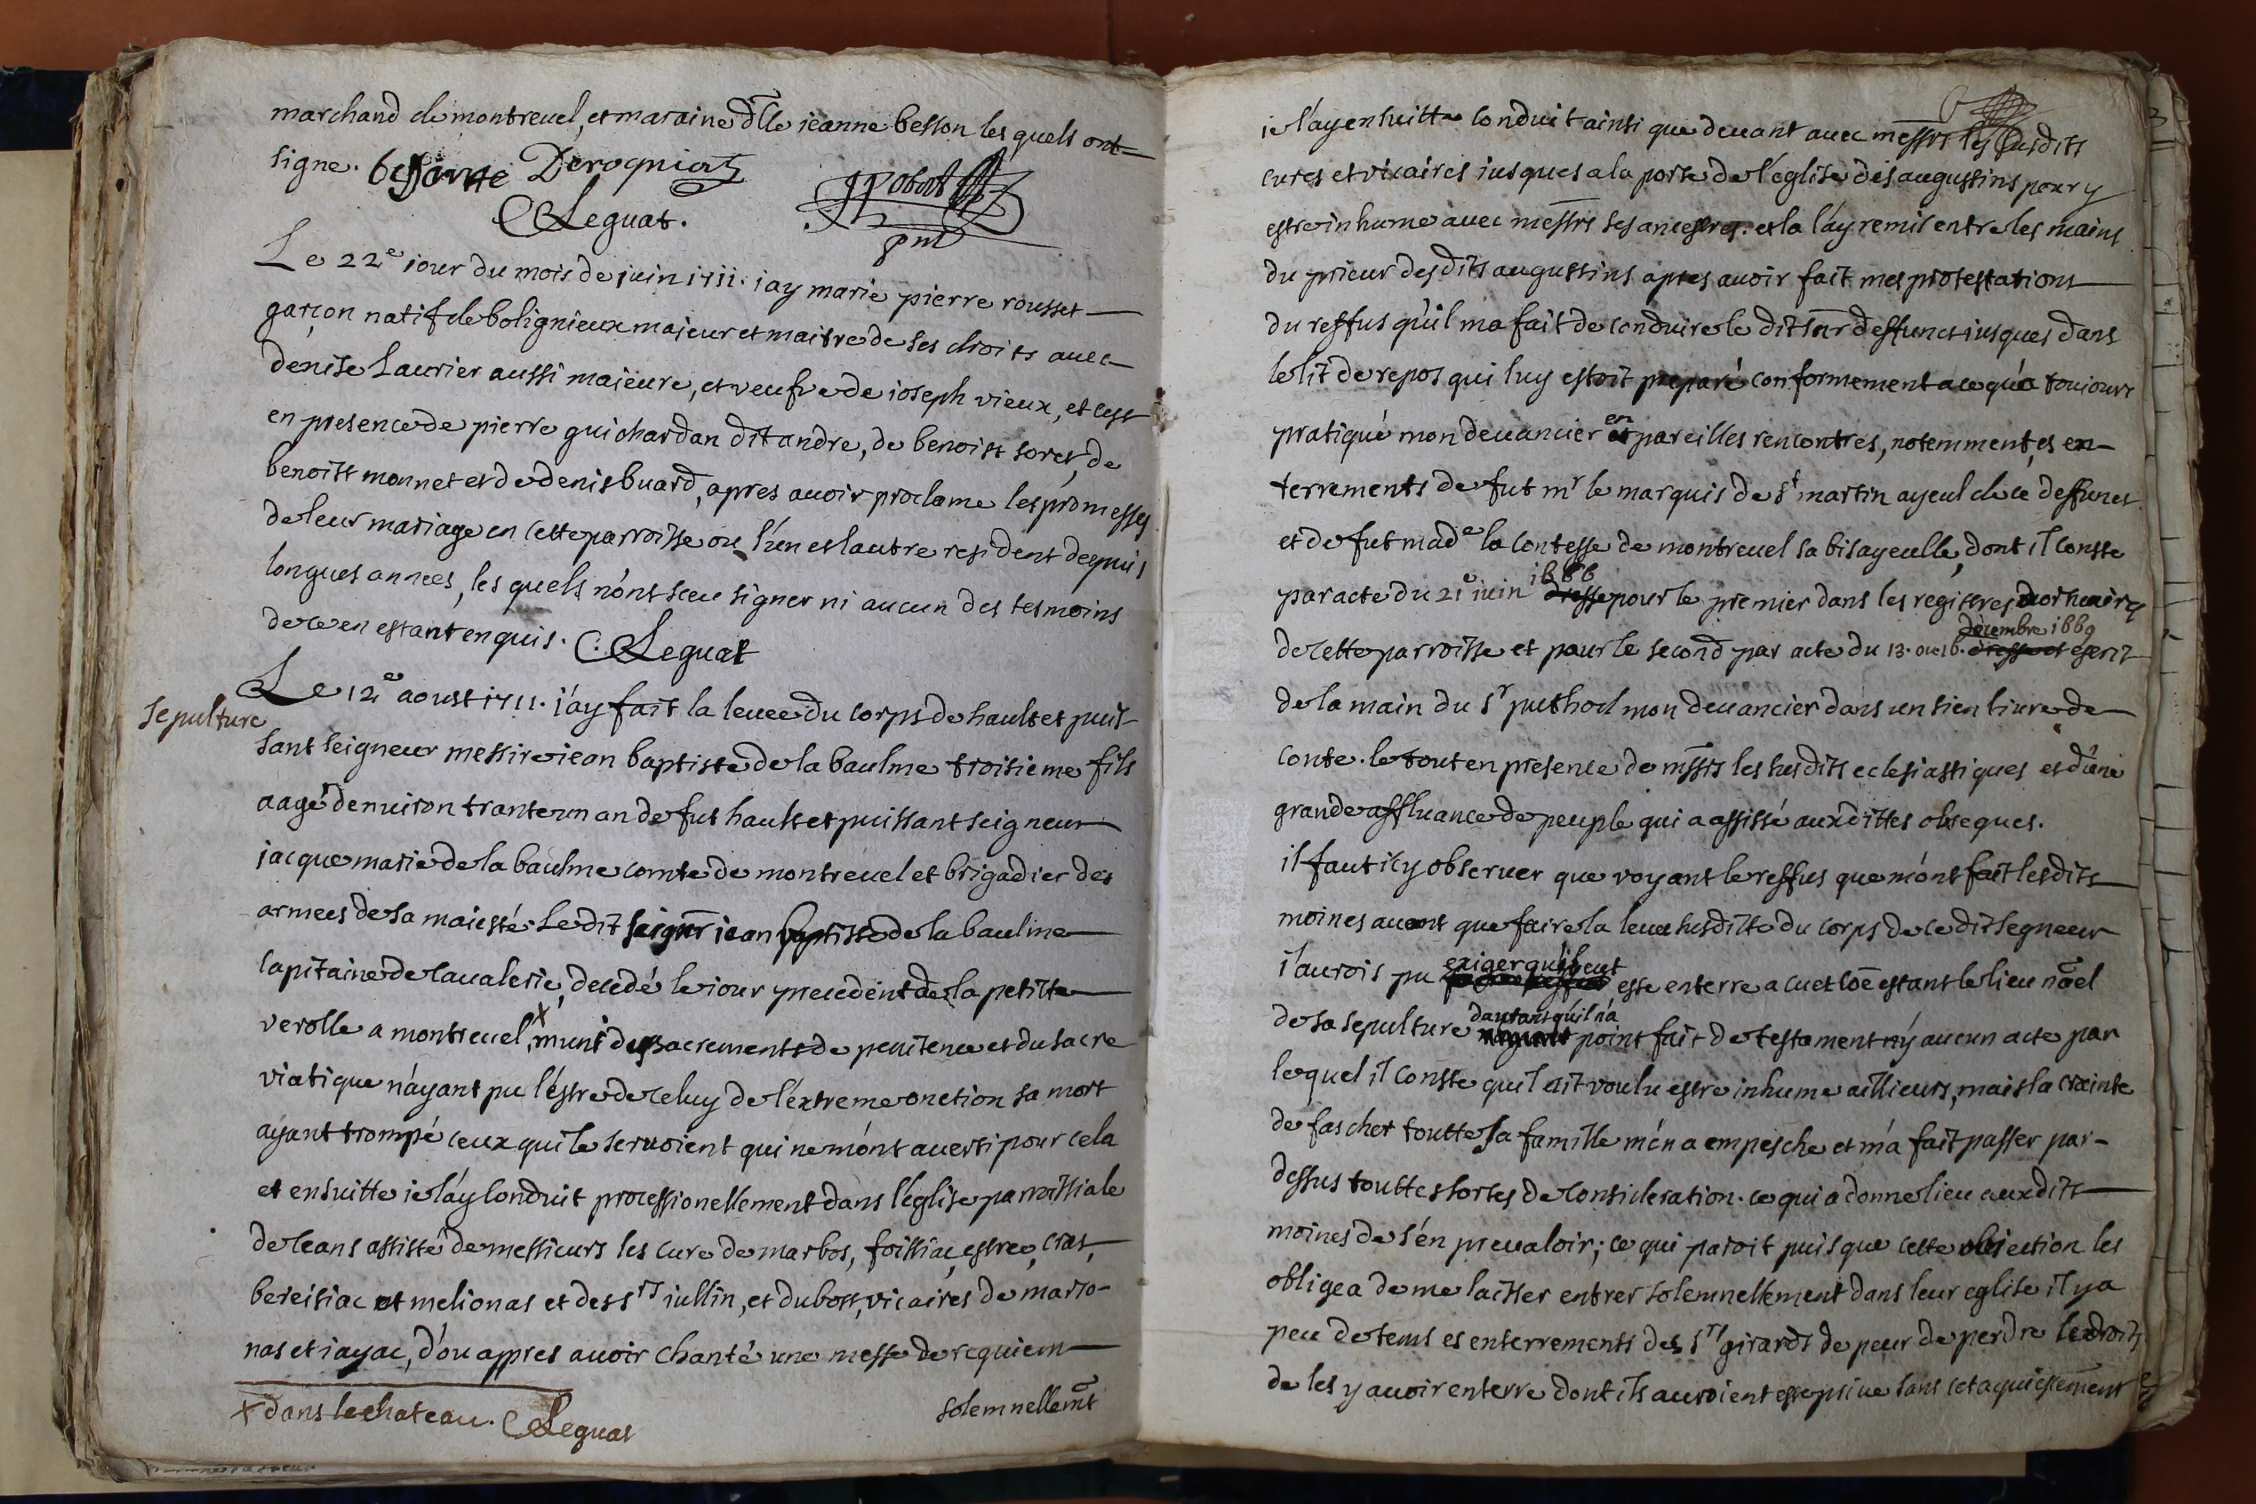 marchand de montrevel, et maraine dlle ieanne besson les quels ont
signe. besonne Derogniat
CLeguat.
Le 22e iour du mois de juin 1711. iay marie pierre rousset
garçon natif de bolignieux majeur et maitre de ses droits avec
denise Laurier aussi majeure, et veufve de ioseph vieux, et cest
en presence de pierre guichardan dit andre, de benoist soret, de
benoist monnet et de denis buard, apres avoir proclame les promesses
de leur mariage en cette parroisse ou l'un et lautre resident depuis
longues annees, les quels n'ont sceu signer ni aucun des tesmoins
de ce en estant enquis. C. Leguat
sepulture
Le 12e aoust 1711. j'ay fait la levee du corps de hault et puis-
sant seigneur messire iean baptiste de la baulme troisieme fils
aagé denviron trante un an de fut hault et puissant seigneur
iacque marie de la baulme comte de montrevel et brigadier des
armees de sa maiesté. Le dit seignr iean baptiste de la baulme
capitaine de cavalerie, decedé le iour precedent de la petitte
verolle a montrevel, x muni des sacrements de penitence et du sacre
viatique n'ayant pu l'éstre de celuy de l'extreme onction sa mort
ayant trompé ceux qui le servoient qui ne m'ont averti pour cela
et ensuitte ie l'ay conduit processionellement dans l'eglise parroissiale
de ceans assisté de messieurs les cure de marbos, foissiac, estree, cras,
bereisiac et melionas et des srs iullin, et dubost, vicaires de marso-
nas et iayac, d'ou appres avoir chanté une messe de requiem
solemnellemt
x dans le chateau. CLeguat
ie l'ay ensuitte conduit ainsi que devant avec messrs les susdits
cures et vicaires iusques a la porte de l'église des augustins pour y
estre inhume avec messrs ses ancestres. et la l'ay remis entre les mains
du prieur desdits augustins apres avoir fait mes protestations
du reffus qu'il ma fait de conduire le dit snr deffunct iusques dans
le lit de repos qui luy estoit preparé conformement a ce qu'a toujours
pratiqué mon devancier en pareilles rencontres, notemment es en-
terrements de fut mr le marquis de st martin ayeul de ce deffunct
et de fut made la contesse de montrevel sa bisayeulle, dont il conste
par acte du 21e iuin 1666 dresse pour le premier dans les registres mortuaires
de cette parroisse et pour le second par acte du 13. ou 16. decembre 1669 dresse et escrit
de la main du sr puthod mon devancier dans un sien livre de
conte. le tout en presence de mssrs les susdits eclesiastiques et d'une
grande affluance de peuple qui a assisté aux dittes obseques.
il faut icy observer que voyant le reffus que m'ont fait lesdits
moines avant que faire la levee susditte du corps de ce dit segneeur
j'aurois pu exiger qu'il eut esté enterre a cuet coe estant le lieu nael
de sa sepulture dautant qu'il n'a point fait de testament ny aucun acte par
lequel il conste quil ait voulu estre inhume aillieurs, mais la crainte
de fascher toutte sa famille m'en a empesche et m'a fait passer par-
dessus touttes sortes de consideration. ce qui a donne lieu aux dits
moines de s'en prevaloir; ce qui paroit puisque cette obiection les
obligea de me laisser entrer solemnellement dans leur eglise il y a
peu de tems es enterrements des srs girards de peur de perdre le droits
de les y avoir enterre dont ils auroient este prive sans cet aquiescement